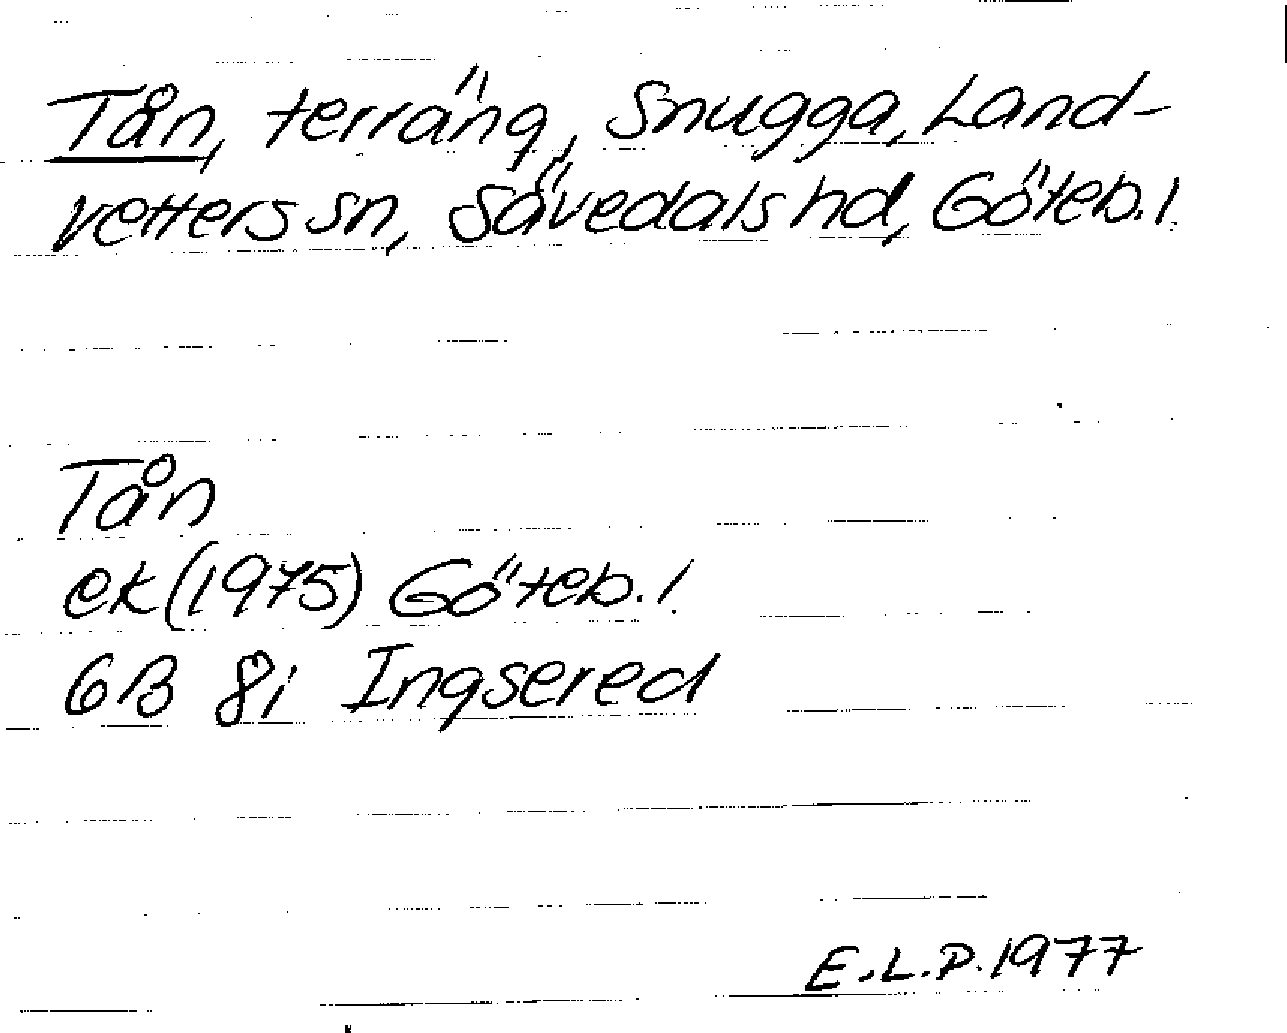 Tån, terräng, Snugga, Land-
vetters sn, Sävedals hd, Göteb. l.
Tån
ek (1975) Göteb. l.
6B 8i Ingsered
E.L.P. 1977